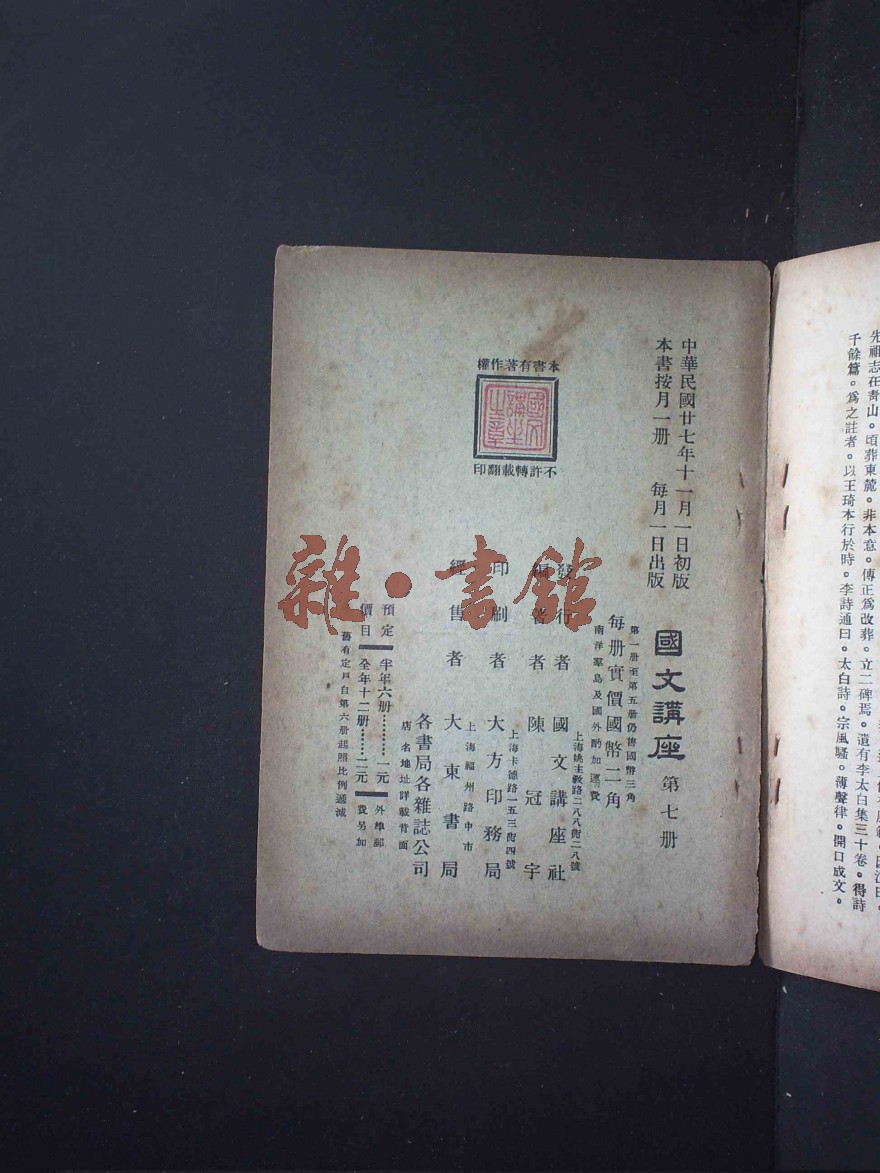 先祖志在青山。頃葬東麓。非本意。傳正爲改葬。立二碑焉。遺有李太白集三十卷。得詩
千餘篇。爲之註者。以王琦本行於時。李詩通曰。太白詩。宗風騷。薄聲律。開口成文。
中華民國廿七年十一月一日初版
本書按月一册 每月一日出版
國文講座 第七册
第一册至第五册仍售國幣三角
每册實價國幣二角
南洋羣島及國外酌加運費
本書有著作權
國文講坐之章
不許轉載翻印
上海姚主教路二八八街二八號
發行者 國文講座社
編著者 陳冠宇
上海卡德路一五三街四號
印刷者 大方印務局
上海福州路中市
經售者 大東書局
各書局各雜誌公司
店名地址詳載背面
預定 半年六册………一元 外埠郵
價目 全年十二册……二元 費另加
舊有定戶自第六册起照比例遞減
雜·書館